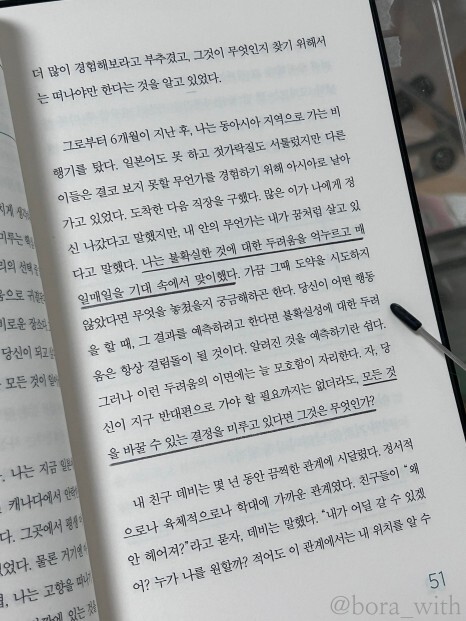 더 많이 경험해보라고 부추겼고, 그것이 무엇인지 찾기 위해서
는 떠나야만 한다는 것을 알고 있었다.
그로부터 6개월이 지난 후, 나는 동아시아 지역으로 가는 비
행기를 탔다. 일본어도 못 하고 젓가락질도 서툴렀지만 다른
이들은 결코 보지 못할 무언가를 경험하기 위해 아시아로 날아
가고 있었다. 도착한 다음 직장을 구했다. 많은 이가 나에게 정
신 나갔다고 말했지만, 내 안의 무언가는 내가 꿈처럼 살고 있
다고 말했다. 나는 불확실한 것에 대한 두려움을 억누르고 매
일매일을 기대 속에서 맞이했다. 가끔 그때 도약을 시도하지
않았다면 무엇을 놓쳤을지 궁금해하곤 한다. 당신이 어떤 행동
을 할 때, 그 결과를 예측하려고 한다면 불확실성에 대한 두려
움은 항상 걸림돌이 될 것이다. 알려진 것을 예측하기란 쉽다.
그러나 이런 두려움의 이면에는 늘 모호함이 자리한다. 자, 당
신이 지구 반대편으로 가야 할 필요까지는 없더라도, 모든 것
을 바꿀 수 있는 결정을 미루고 있다면 그것은 무엇인가?
내 친구 데비는 몇 년 동안 끔찍한 관계에 시달렸다. 정서적
으로나 육체적으로나 학대에 가까운 관계였다. 친구들이 “왜
안 헤어져?”라고 묻자, 데비는 말했다. “내가 어딜 갈 수 있겠
어? 누가 나를 원할까? 적어도 이 관계에서는 내 위치를 알 수
51
@bora_with
미루는
의 선택
당신이 되고
모든 것이
나는 지금
캐나다에서
그곳에서
었다. 물론 거기에
나는 고향을 떠나
에 있는